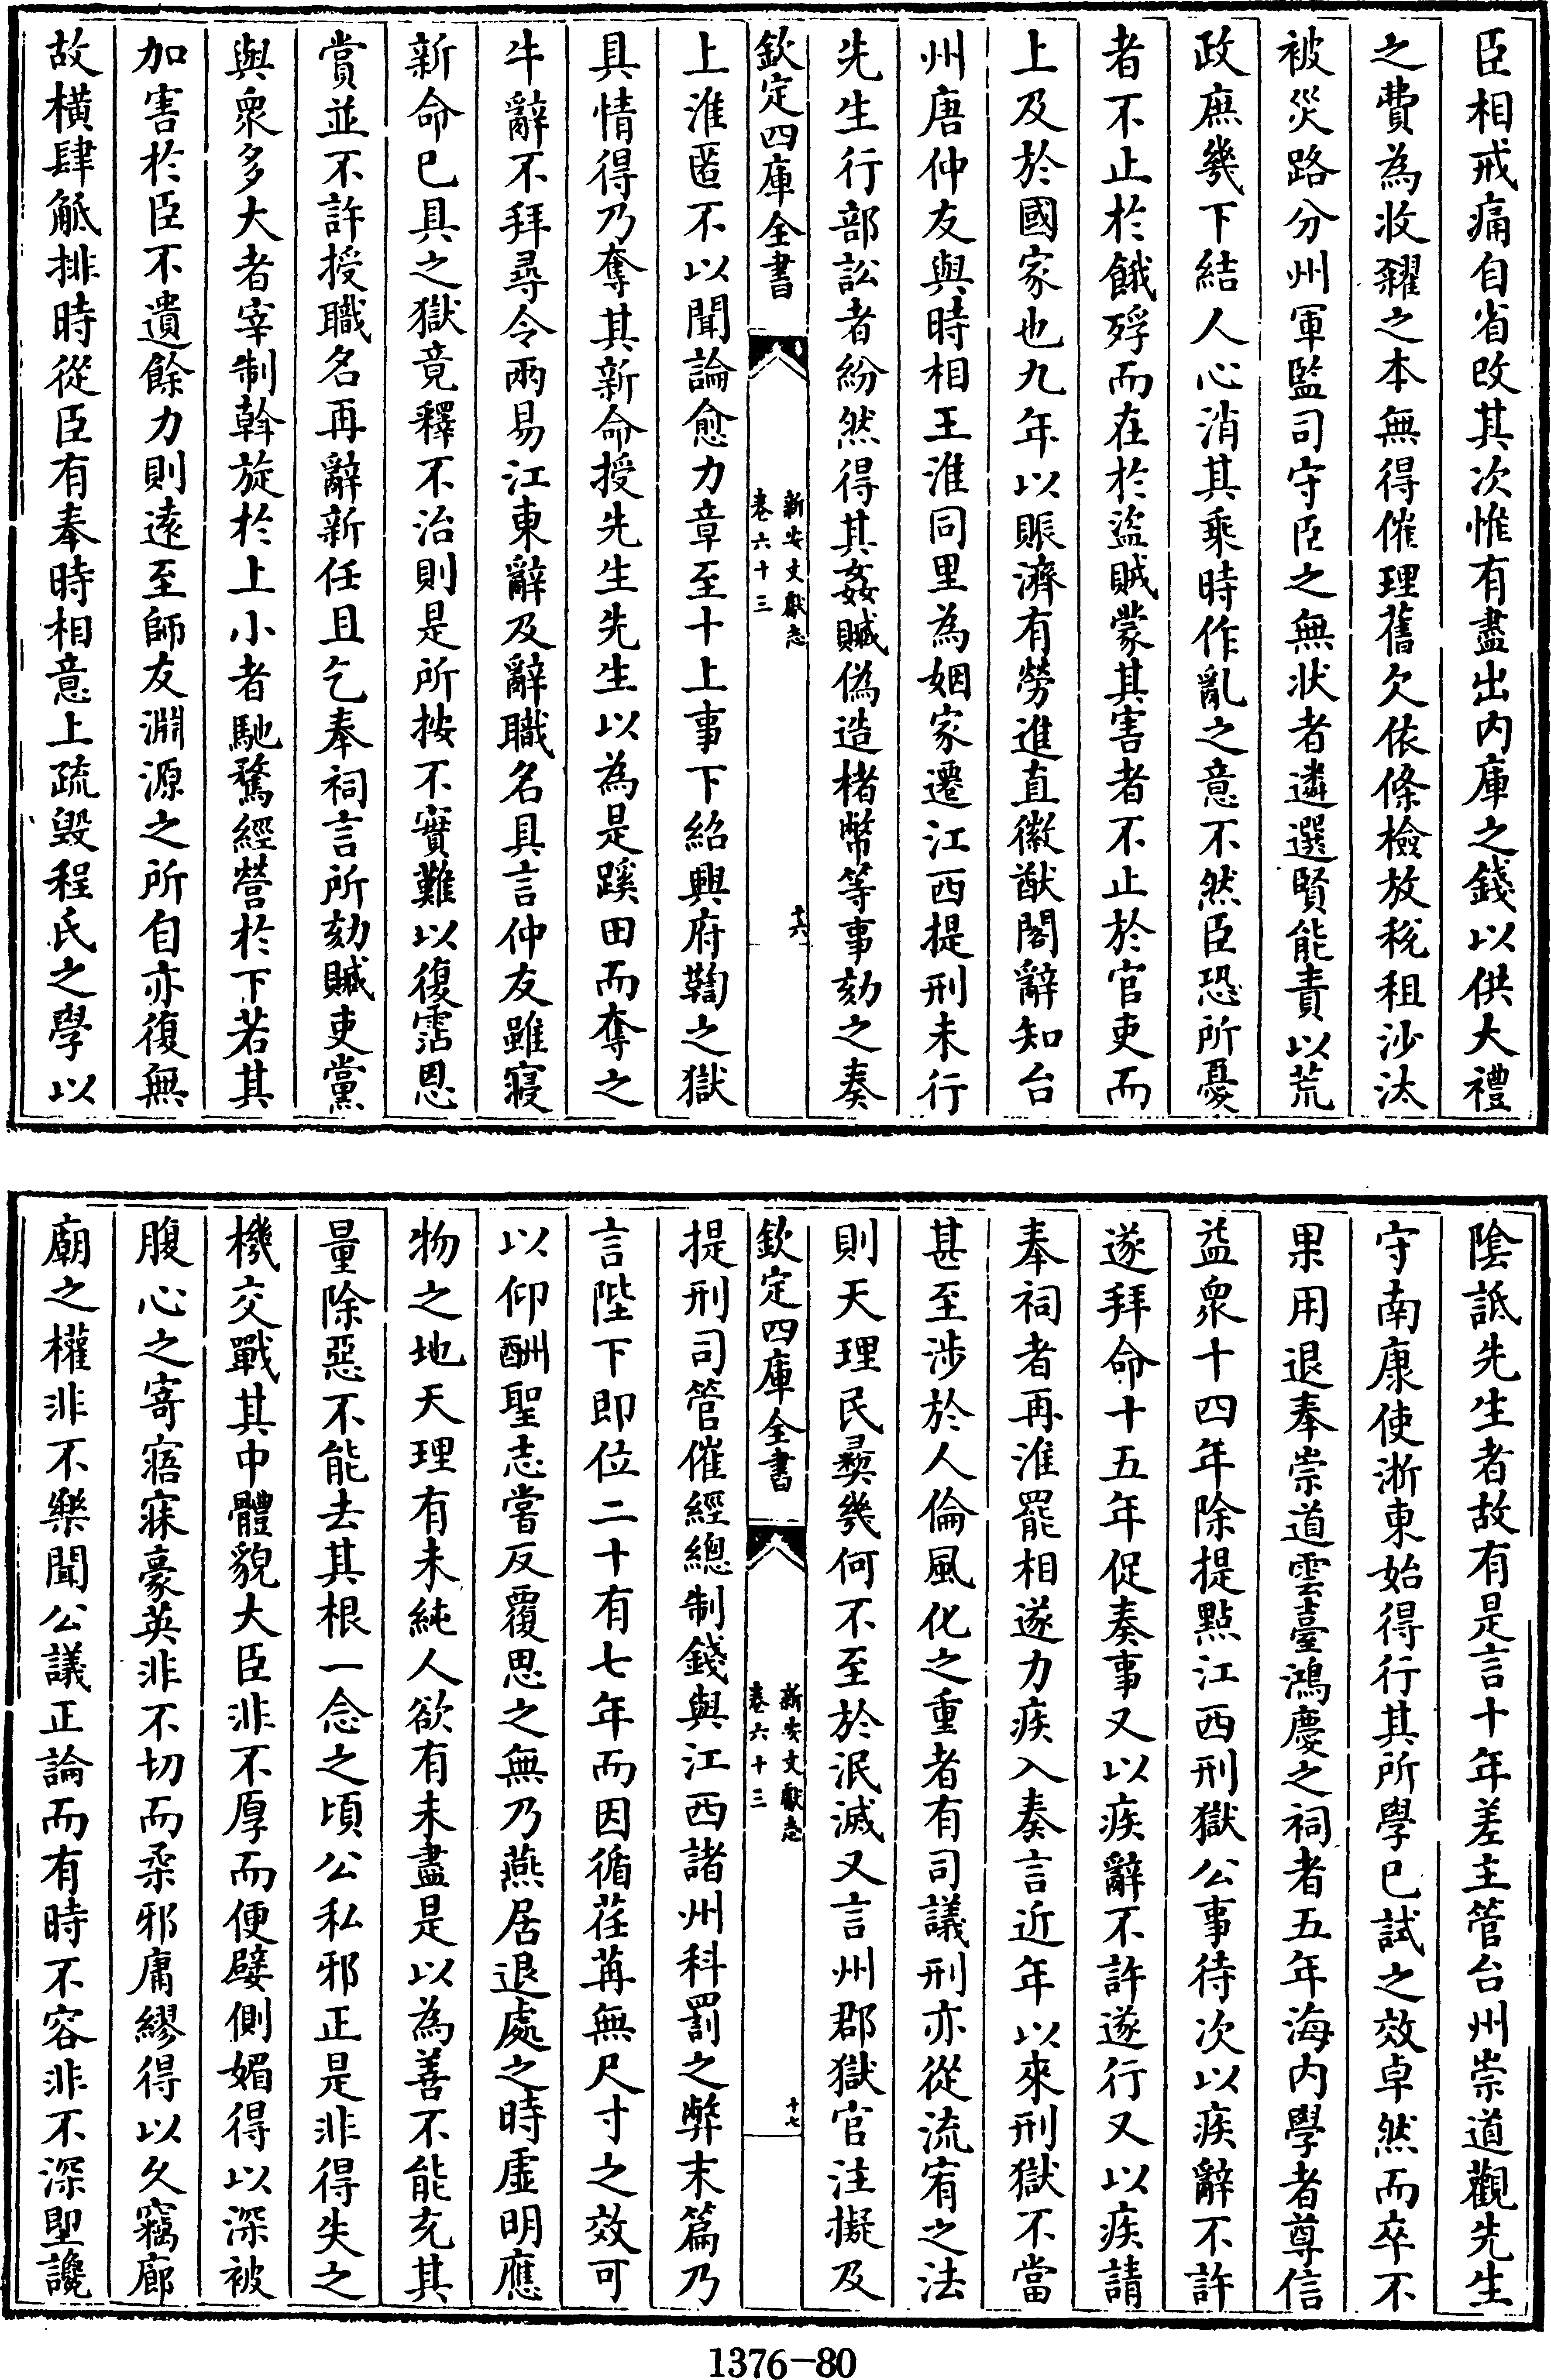 臣相戒痛自省改其次惟有盡出内庫之錢以供大禮
之費為收糴之本無得催理舊欠依條檢放税租沙汰
被災路分州軍監司守臣之無狀者遴選賢能責以荒
政庶幾下結人心消其乘時作亂之意不然臣恐所憂
者不止於餓殍而在於盜賊蒙其害者不止於官吏而
上及於國家也九年以賑濟有勞進直徽猷閣辭知台
州唐仲友與時相王淮同里為姻家遷江西提刑未行
先生行部訟者紛然得其姦贓偽造楮幣等事劾之奏
欽定四庫全書
新安文獻志
卷六十三
十六
上淮匿不以聞論愈力章至十上事下紹興府鞫之獄
具情得乃奪其新命授先生先生以為是蹊田而奪之
牛辭不拜尋令兩易江東辭及辭職名具言仲友雖寢
新命已具之獄竟釋不治則是所按不實難以復霑恩
賞並不許授職名再辭新任且乞奉祠言所劾贓吏黨
與衆多大者宰制斡旋於上小者馳騖經營於下若其
加害於臣不遺餘力則遠至師友淵源之所自亦復無
故横肆觝排時從臣有奉時相意上疏毁程氏之學以
陰詆先生者故有是言十年差主管台州崇道觀先生
守南康使浙東始得行其所學已試之效卓然而卒不
果用退奉崇道雲臺鴻慶之祠者五年海内學者尊信
益衆十四年除提點江西刑獄公事待次以疾辭不許
遂拜命十五年促奏事又以疾辭不許遂行又以疾請
奉祠者再淮罷相遂力疾入奏言近年以來刑獄不當
甚至涉於人倫風化之重者有司議刑亦從流宥之法
則天理民彝幾何不至於泯滅又言州郡獄官注擬及
欽定四庫全書
新安文獻志
卷六十三
十七
提刑司管催經總制錢與江西諸州科罰之弊末篇乃
言陛下即位二十有七年而因循荏苒無尺寸之效可
以仰酬聖志嘗反覆思之無乃燕居退處之時虛明應
物之地天理有未純人欲有未盡是以為善不能充其
量除惡不能去其根一念之頃公私邪正是非得失之
機交戰其中體貌大臣非不厚而便嬖側媚得以深被
腹心之寄寤寐豪英非不切而柔邪庸繆得以久竊廊
廟之權非不樂聞公議正論而有時不容非不深堲讒
1376-80